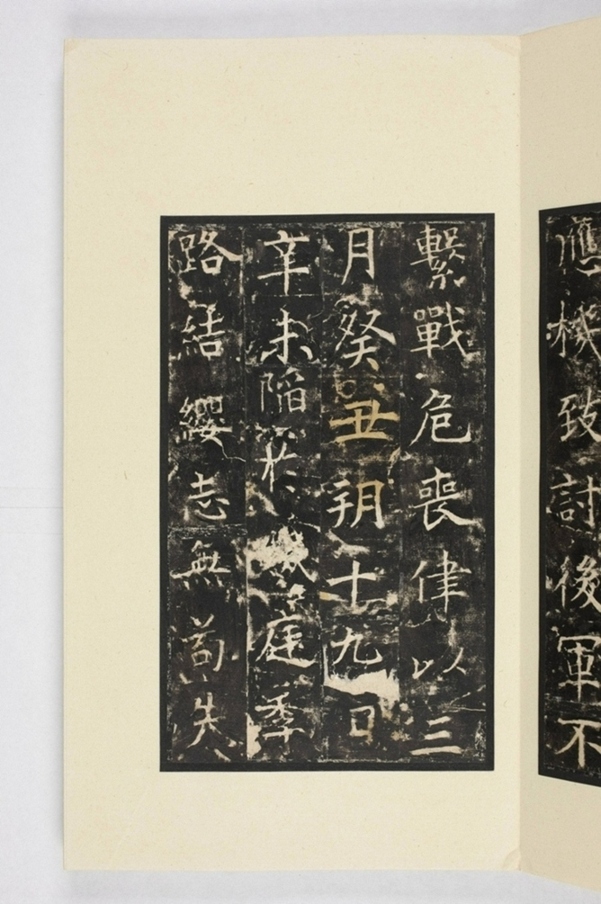 應機致討後軍不
繋戰危喪律以三
月癸丑朔十九日
辛未陷於賊庭季
路結纓志無苟失